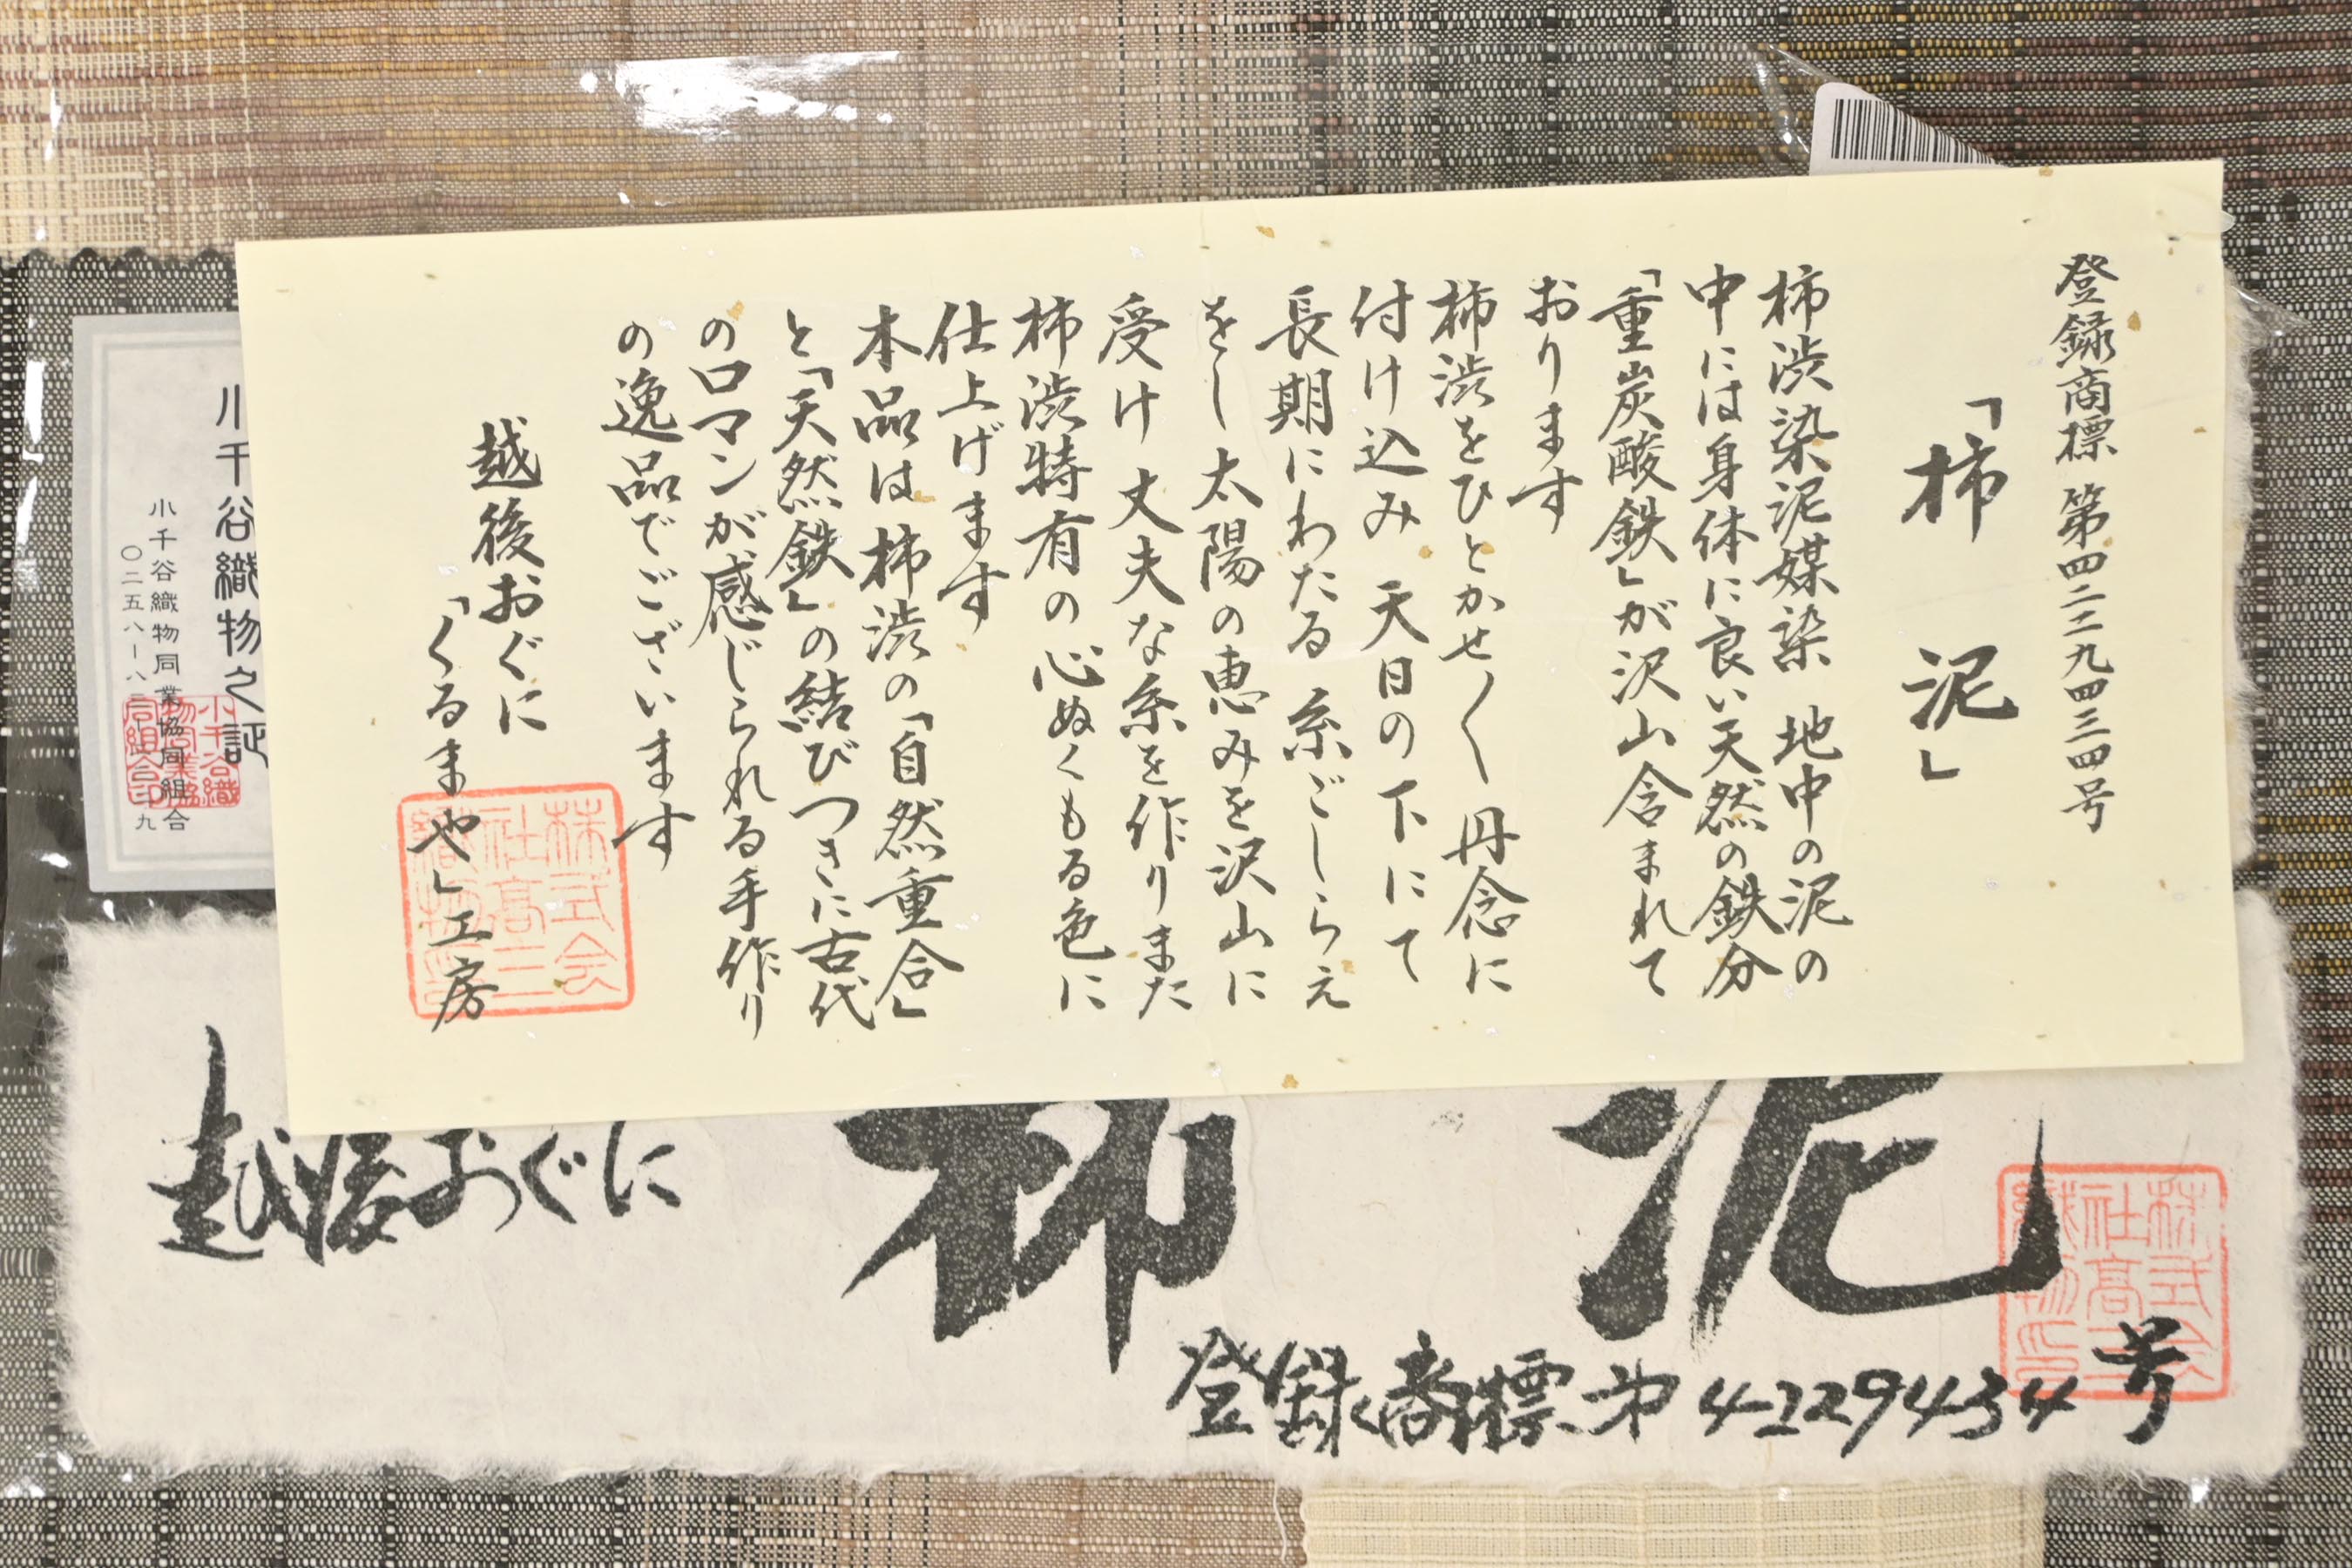 登録商標 第四二二九四三四号
「柿 泥」
柿渋染泥媒染 地中の泥の
中には身体に良い天然の鉄分
「重炭酸鉄」が沢山含まれて
おります
柿渋をひとかせ〱丹念に
付け込み 天日の下にて
長期にわたる糸ごしらえ
をし 太陽の恵みを沢山に
受け 丈夫な糸を作りまた
柿渋特有の心ぬくもる色に
仕上げます
本品は柿渋の「自然重合」
と「天然鉄」の結びつきに古代
のロマンが感じられる手作り
の逸品でございます
越後おぐに
「くるまや」工房
株式会
社髙三
織物印
小千谷織物之証
小千谷織物同業協同組合
小千谷織
物同業協
同組合印
柿 泥
越後おぐに
登録商標 第4229434号
株式会
社髙三
織物印